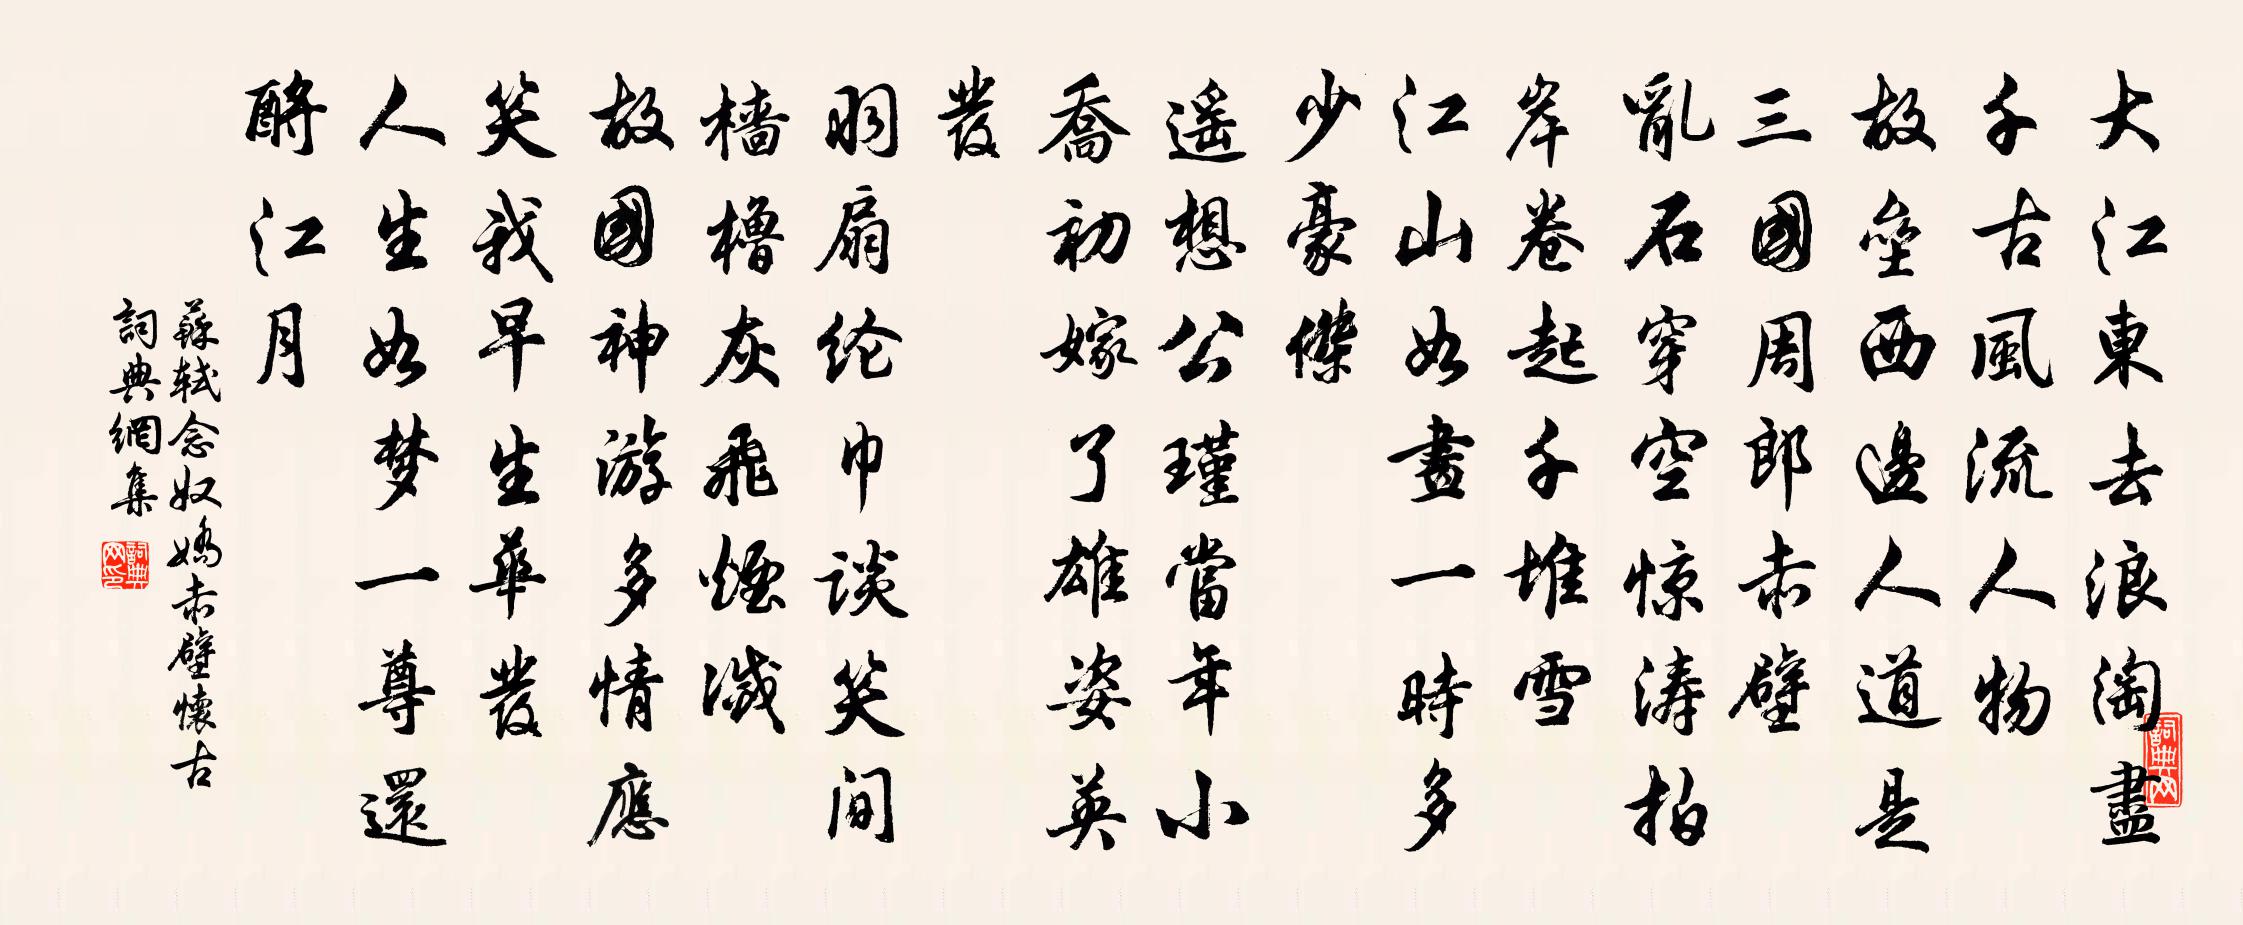 大江東去浪淘盡
千古風流人物
故壘西邊人道是
三國周郎赤壁
亂石穿空惊涛拍
岸卷起千堆雪
江山如畫一時多
少豪傑
遥想公瑾當年小
喬初嫁了雄姿英
發
羽扇纶巾談笑间
檣櫓灰飛煙滅
故國神游多情應
笑我早生華發
人生如梦一尊還
酹江月
蘇軾念奴嬌赤壁懷古
詞典網集
詞典网印
詞典网